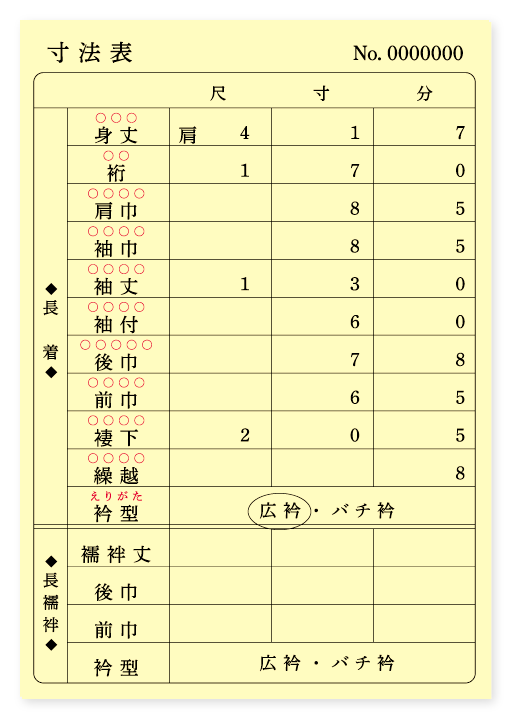 寸法表 No. 0000000
尺 寸 分
◆長着◆
○○○
身丈 肩 4 1 7
○○
裄 1 7 0
○○○○
肩巾 8 5
○○○○
袖巾 8 5
○○○○
袖丈 1 3 0
○○○○
袖付 6 0
○○○○○
後巾 7 8
○○○○
前巾 6 5
○○○○
褄下 2 0 5
○○○○
繰越 8
えりがた
衿型 広衿・バチ衿
◆長襦袢◆
襦袢丈
後巾
前巾
衿型 広衿・バチ衿